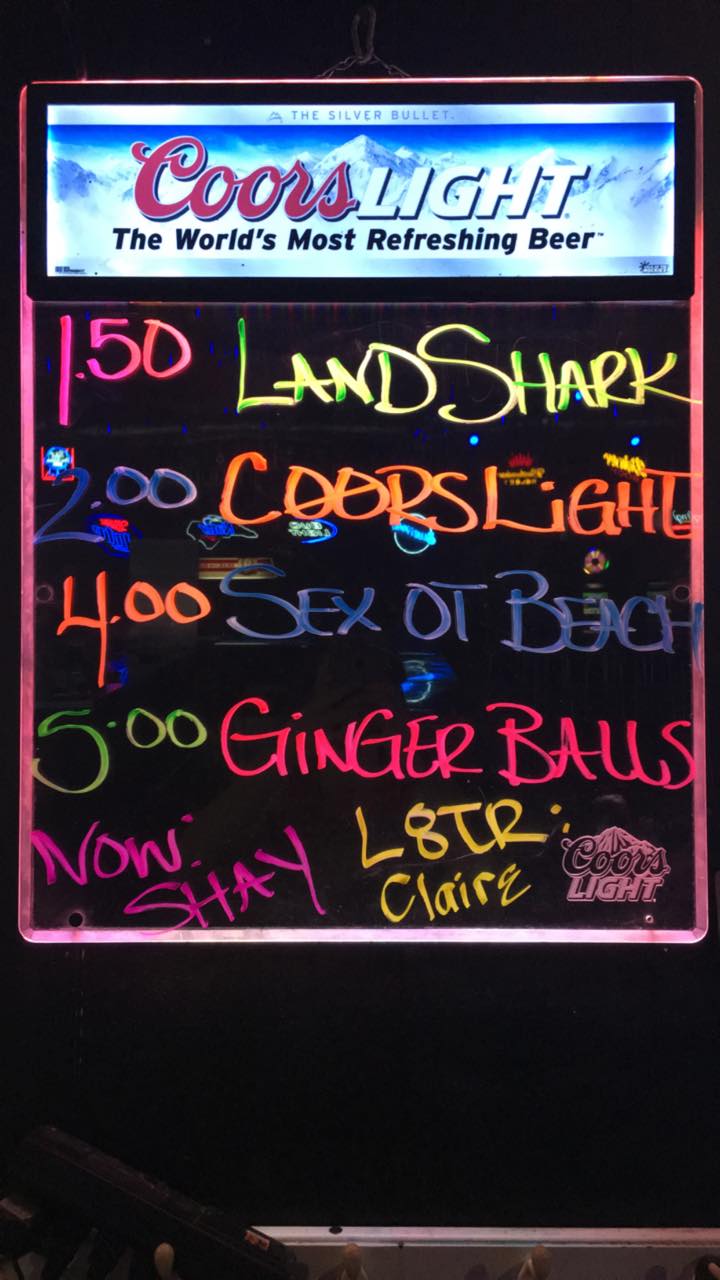 THE SILVER BULLET.
Coors LIGHT
The World's Most Refreshing Beer™
1.50 LANDSHARK
2.00 COORS LiGHT
4.00 SEX OT BEACH
5.00 GiNGER BALLS
NOW: SHAY
L8TR: Claire
Coors LIGHT